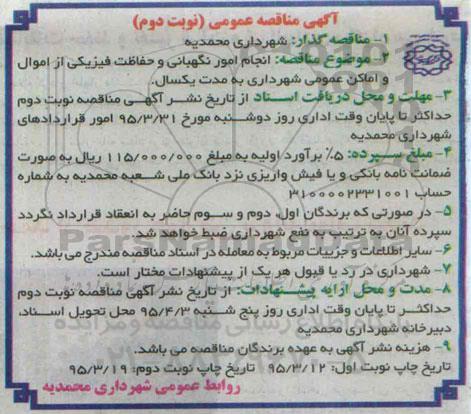 آگهی مناقصه عمومی (نوبت دوم)
۱- مناقصه گذار: شهرداری محمدیه
۲- موضوع مناقصه: انجام امور نگهبانی و حفاظت فیزیکی از اموال
و اماکن عمومی شهرداری به مدت یکسال.
۳- مهلت و محل دریافت اسناد از تاریخ نشر آگهی مناقصه نوبت دوم
حداکثر تا پایان وقت اداری روز دوشنبه مورخ ۹۵/۳/۳۱ امور قراردادهای
شهرداری محمدیه
۴- مبلغ سپرده: ۵٪ برآورد اولیه به مبلغ ۱۱۵/۰۰۰/۰۰۰ ریال به صورت
ضمانت نامه بانکی و یا فیش واریزی نزد بانک ملی شعبه محمدیه به شماره
حساب ۳۱۰۰۰۰۲۳۳۱۰۰۱
۵- در صورتی که برندگان اول، دوم و سوم حاضر به انعقاد قرارداد نگردد
سپرده آنان به ترتیب به نفع شهرداری ضبط خواهد شد.
۶- سایر اطلاعات و جزییات مربوط به معامله در اسناد مناقصه مندرج می باشد.
۷- شهرداری در رد یا قبول هر یک از پیشنهادات مختار است.
۸- مدت و محل ارایه پیشنهادات: از تاریخ نشر آگهی مناقصه نوبت دوم
حداکثر تا پایان وقت اداری روز پنج شنبه ۹۵/۴/۳ محل تحویل اسناد،
دبیرخانه شهرداری محمدیه
۹- هزینه نشر آگهی به عهده برندگان مناقصه می باشد.
تاریخ چاپ نوبت اول: ۹۵/۳/۱۲ تاریخ چاپ نوبت دوم: ۹۵/۳/۱۹
روابط عمومی شهرداری محمدیه